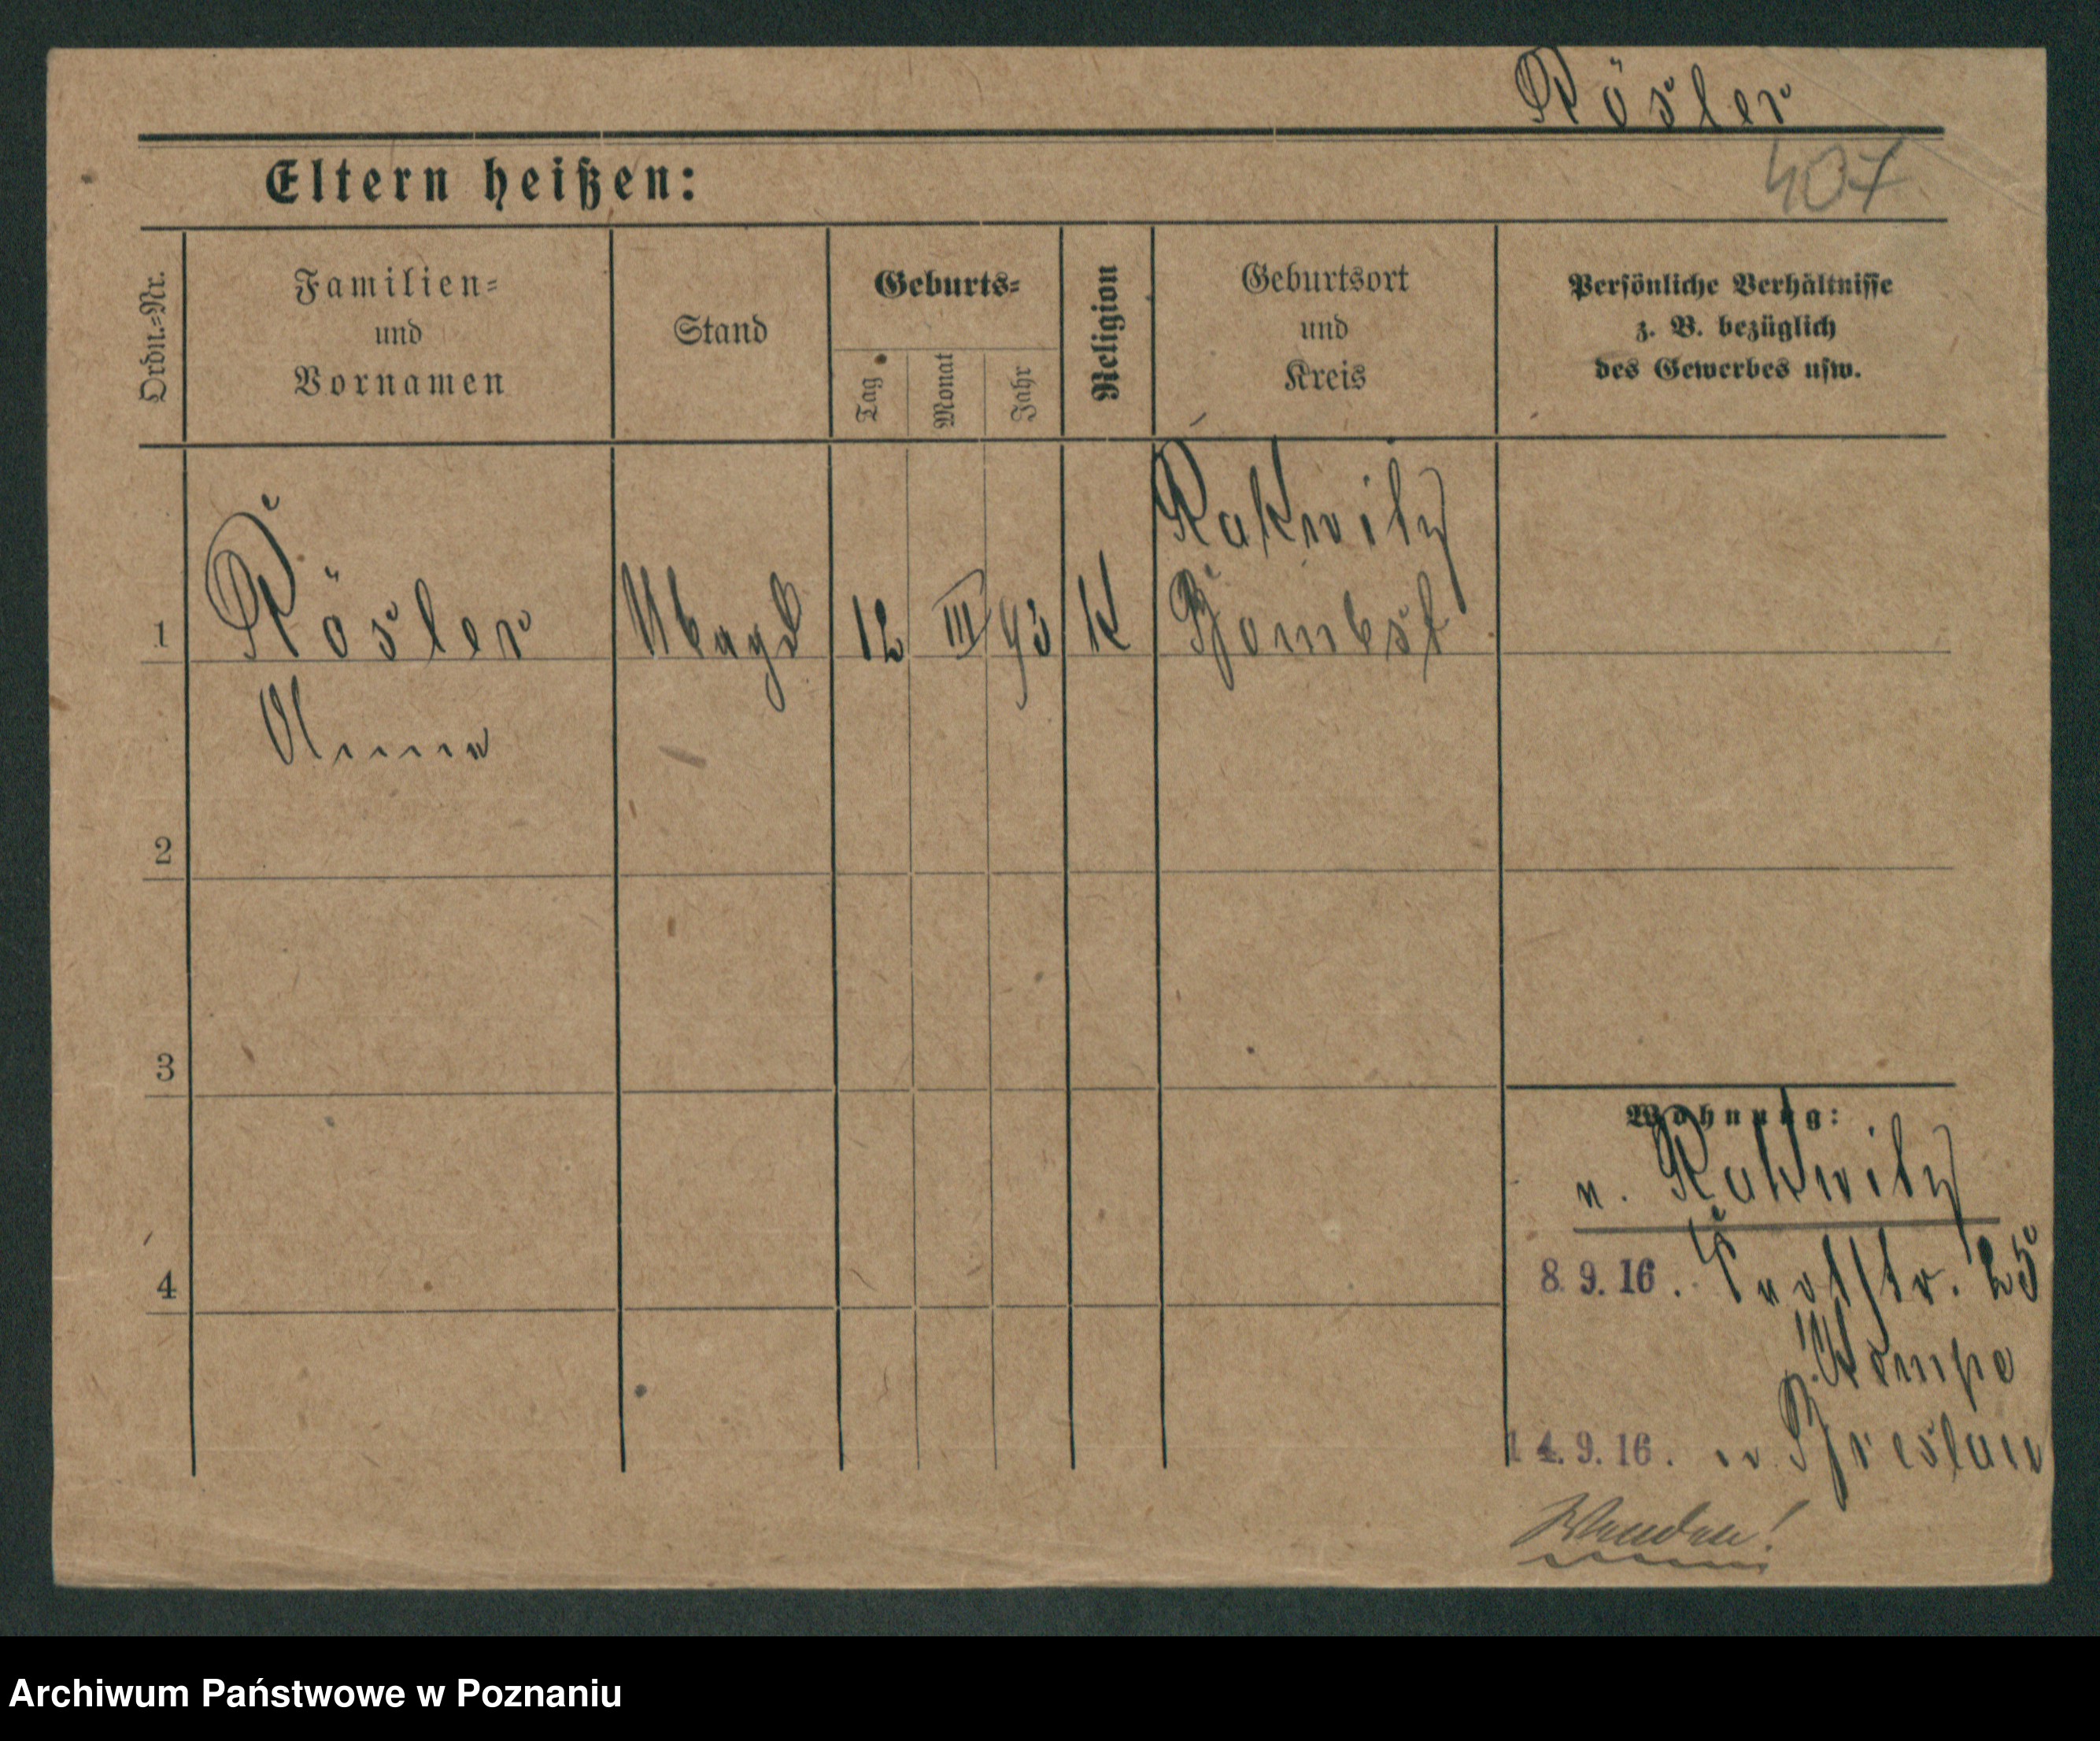 Rösler
Eltern heißen:
407
Ordn.-Nr.
Familien-
und
Vornamen
Stand
Geburts-
Tag
Monat
Jahr
Religion
Geburtsort
und
Kreis
Persönliche Verhältnisse
z. B. bezüglich
des Gewerbes usw.
Rakwitz
1 Rösler 12 III 93 K Bombst
Anna
2
3
Wohnung:
n. Rakwitz
4
8.9.16. 25
14.9.16. Breslau
Wenden!
Archiwum Państwowe w Poznaniu